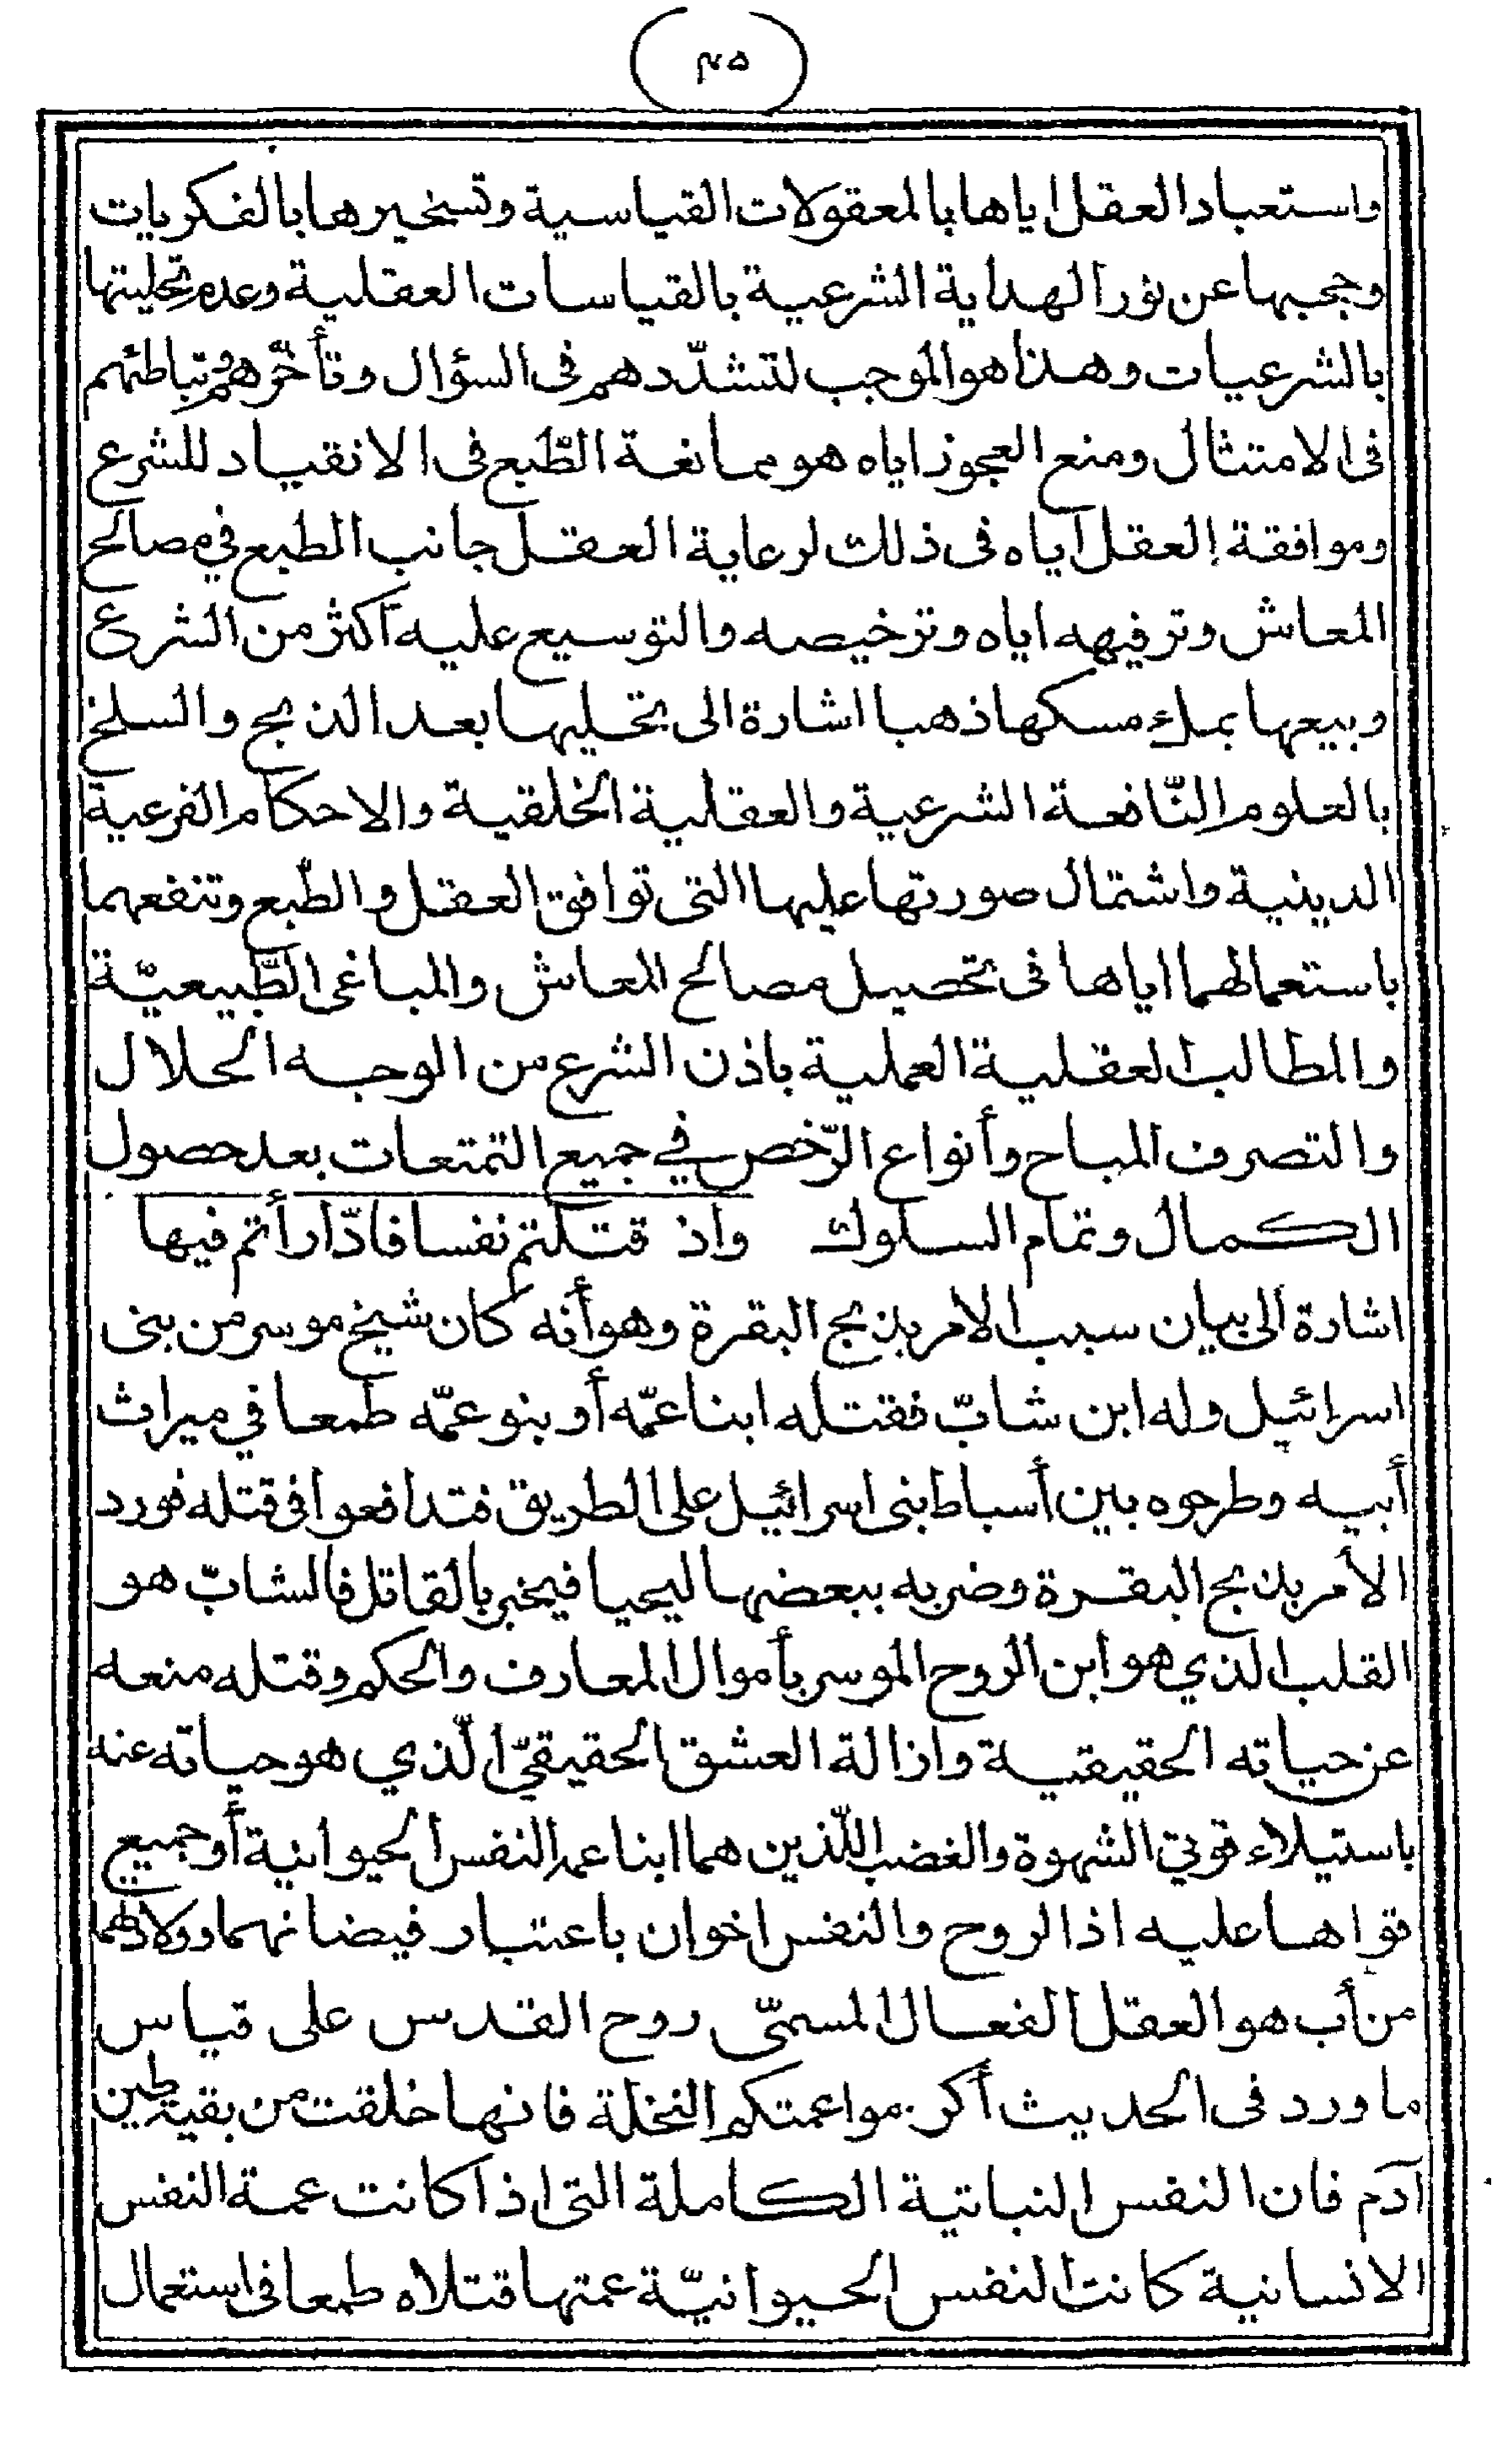 ٣٥
واستعباد العقل اياها بالمعقولات القياسية وتسخيرها بالفكريات
وحجبها عن نور الهداية الشرعية بالقياسات العقلية وعدم تحليتها
بالشرعيات وهذا هو الموجب لتشدّدهم فى السؤال وتأخّرهم وتباطئهم
فى الامتثال ومنع العجوز اياه هو ممانعة الطّبع فى الانقياد للشرع
وموافقة العقل اياه فى ذلك لرعاية العقل جانب الطبع في مصالح
المعاش وترفيهه اياه وترخيصه والتوسيع عليه أكثر من الشرع
وبيعها بملء مسكها ذهبا اشارة الى تحليها بعد الذبح والسلخ
بالعلوم النّافعة الشرعية والعقلية الخلقية والاحكام الفرعية
الدينية واشتمال صورتها عليها التى توافق العقل والطّبع وتنفعهما
باستعمالهما اياها فى تحصيل مصالح المعاش والمباغى الطّبيعيّة
والمطالب العقلية العملية باذن الشرع من الوجه الحلال
والتصرف المباح وأنواع الرّخص في جميع التمتعات بعد حصول
الكمال وتمام السلوك واذ قتلتم نفسا فادّارأتم فيها
اشارة الى بيان سبب الامر بذبح البقرة وهو أنه كان شيخ موسر من بنى
اسرائيل وله ابن شابّ فقتله ابنا عمّه أو بنو عمّه طمعا في ميراث
أبيه وطرحوه بين أسباط بنى اسرائيل على الطريق فتدافعوا فى قتله فورد
الأمر بذبح البقرة وضربه ببعضها ليحيا فيخبر بالقاتل فالشابّ هو
القلب الذي هو ابن الروح الموسر بأموال المعارف والحكم وقتله منعه
عن حياته الحقيقية وازالة العشق الحقيقيّ الّذي هو حياته عنه
باستيلاء قوتي الشهوة والغضب اللّذين هما ابنا عمه النفس الحيوانية أو جميع
قواها عليه اذ الروح والنفس اخوان باعتبار فيضانهما وولادتهما
من أب هو العقل الفعال المسمّى روح القدس على قياس
ما ورد فى الحديث أكرموا عمتكم النخلة فانها خلقت من بقية طين
آدم فان النفس النباتية الكاملة التى اذا كانت عمة النفس
الانسانية كانت النفس الحيوانيّة عمتها قتلاه طمعا فى استعمال